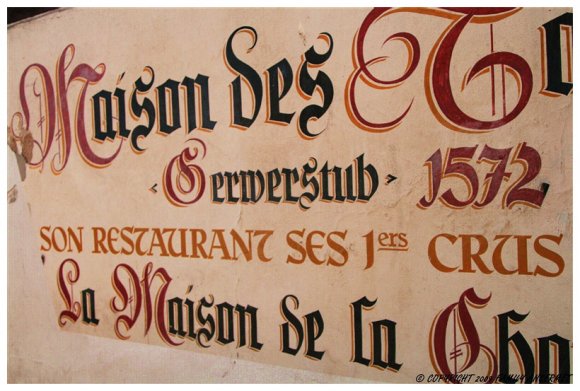 Maison des Ta
‹ Gerwerstub › 1572
SON RESTAURANT SES 1ers CRUS
La Maison de la Cho
© COPYRIGHT